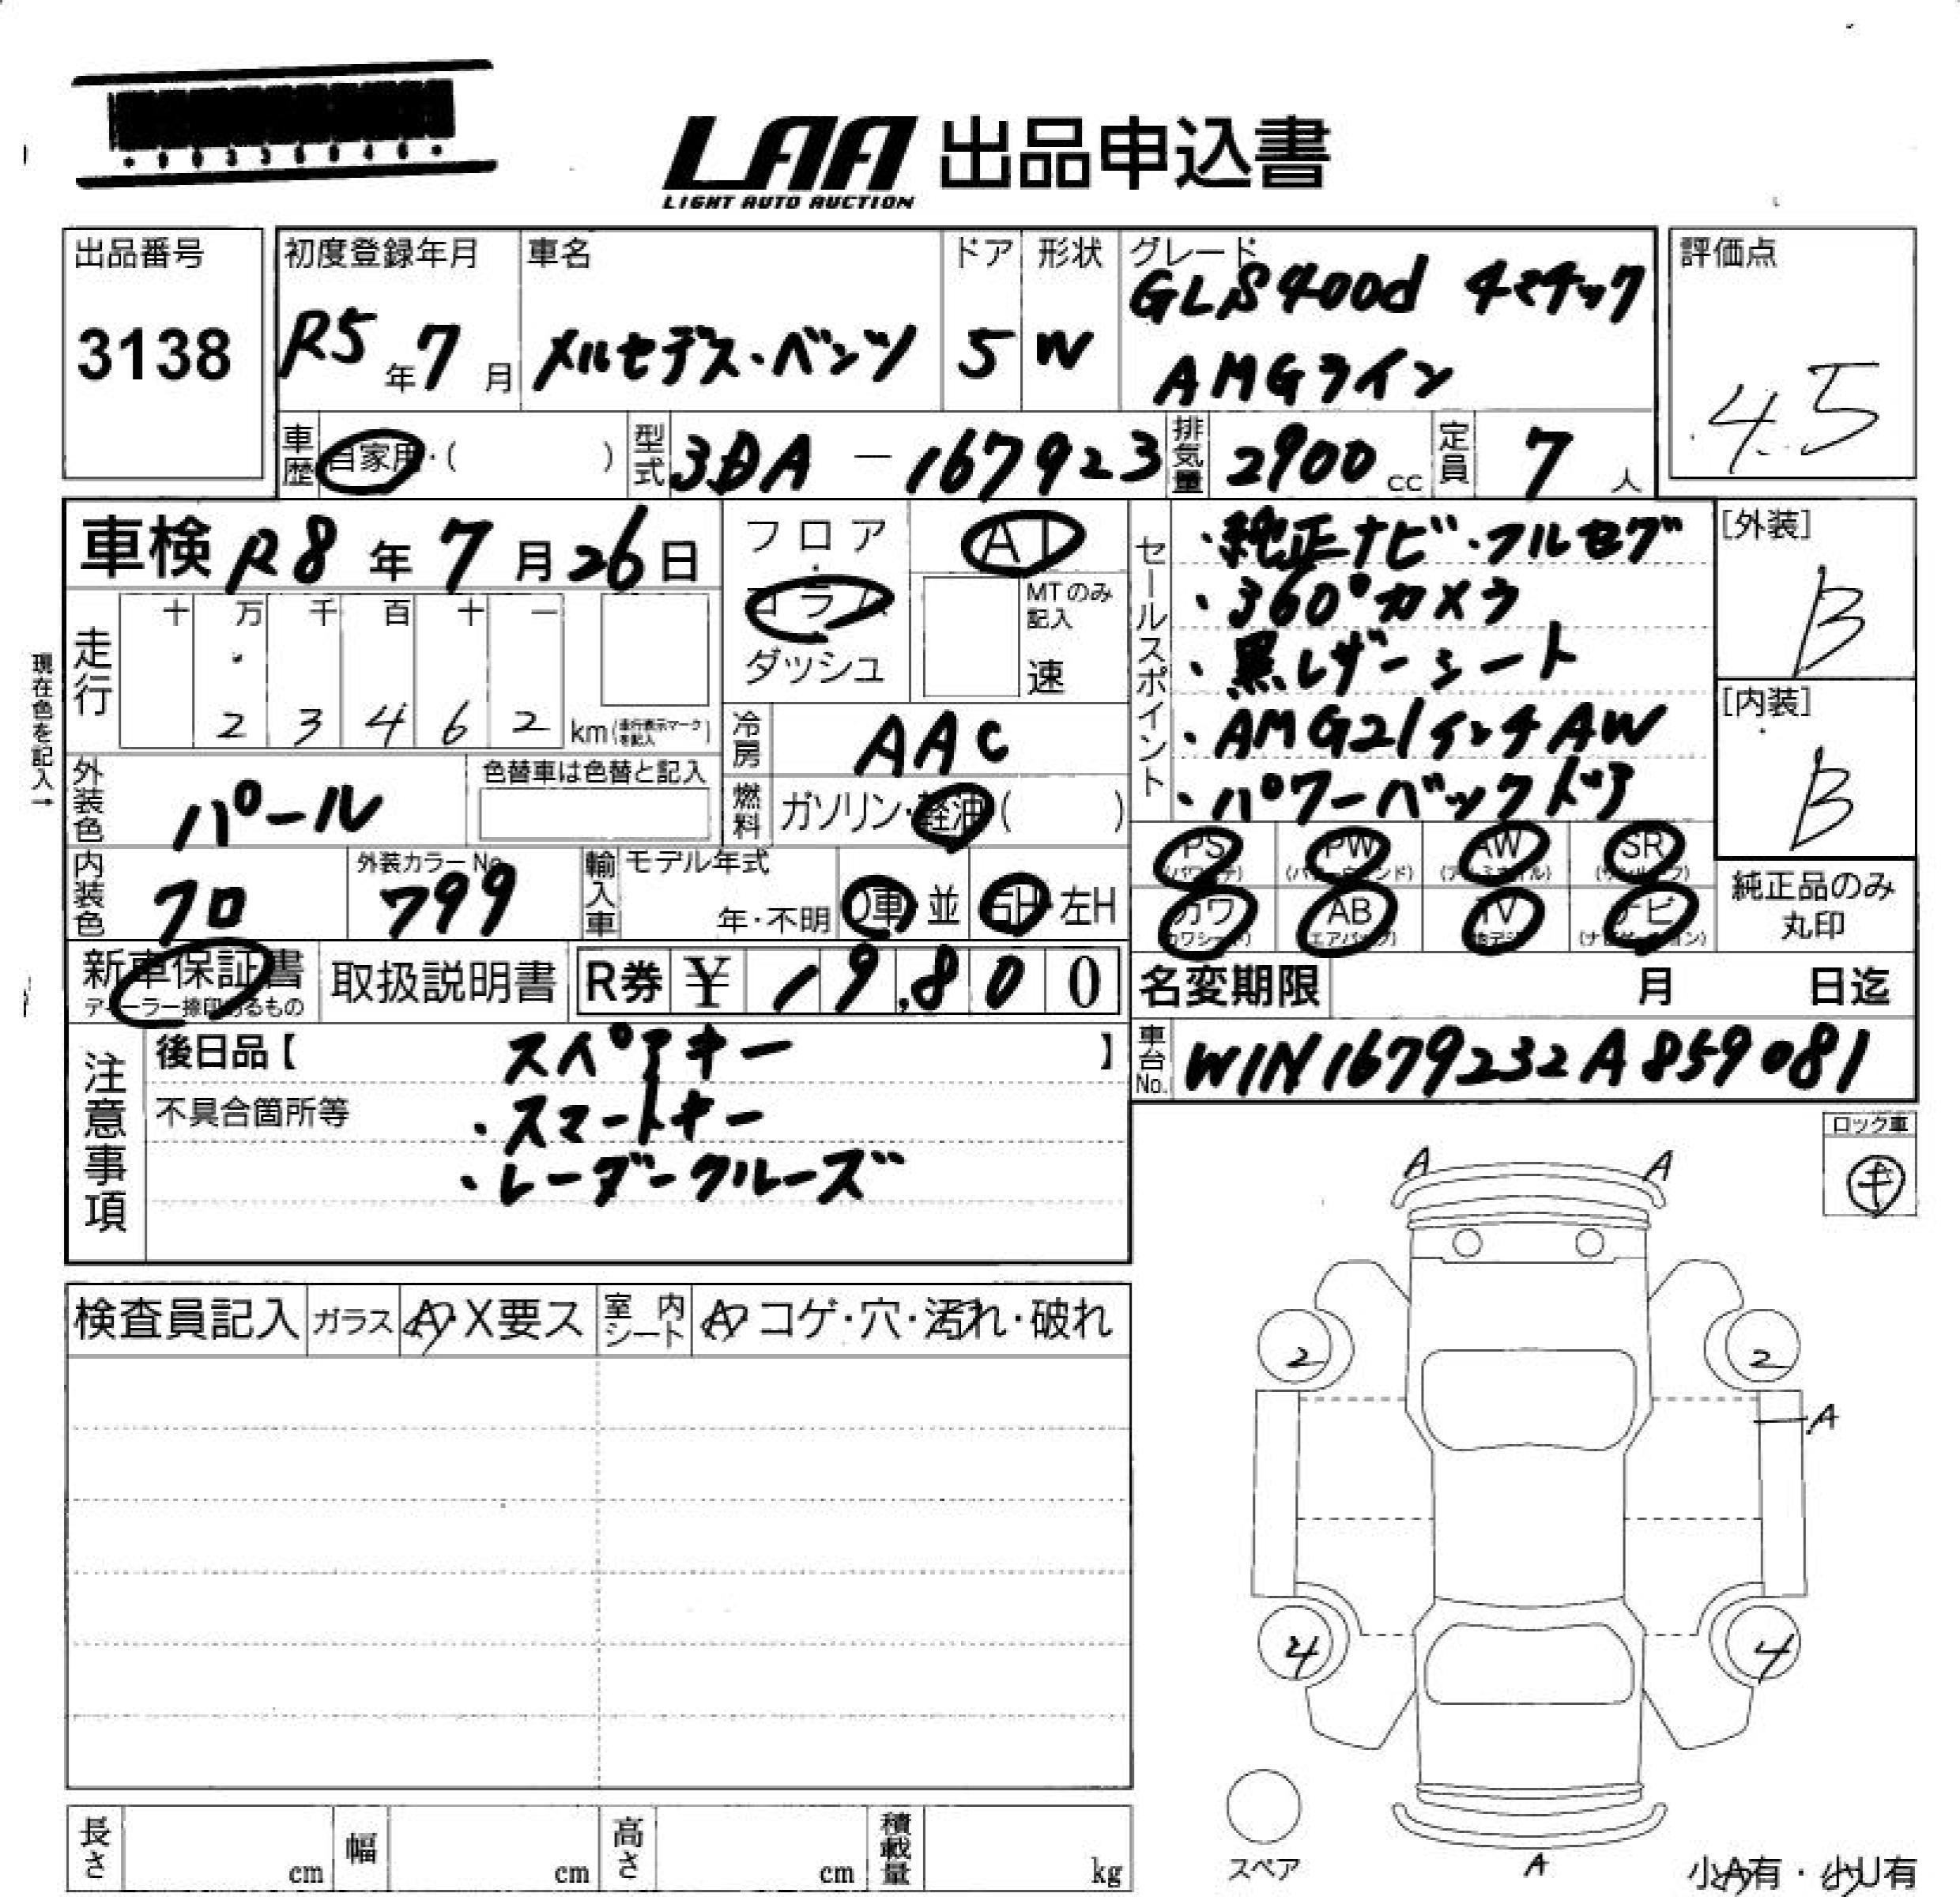 LAA 出品申込書
LIGHT AUTO AUCTION
出品番号
3138
初度登録年月
R5年7月
車名
メルセデス・ベンツ
ドア
5
形状
W
グレード
GLS400d 4マチック
AMGライン
評価点
4.5
車歴 自家用・( )
型式 3DA-167923
排気量 2900cc
定員 7人
車検 R8年7月26日
走行
十 万 千 百 十 一
2 3 4 6 2 km(走行表示マークを記入)
現在色を記入→
フロア・コラム・ダッシュ
AT
MTのみ記入
速
冷房 AAC
燃料 ガソリン・軽油( )
外装色 パール
色替車は色替と記入
内装色 クロ
外装カラーNo. 799
輸入車 モデル年式
年・不明 D車・並 右H・左H
セールスポイント
・純正ナビ・フルセグ
・360°カメラ
・黒レザーシート
・AMG21インチAW
・パワーバックドア
[外装]
B
[内装]
B
PS PW AW SR
カワ AB TV ナビ
純正品のみ
丸印
新車保証書
ディーラー捺印あるもの
取扱説明書
R券 ¥19,800
名変期限 月 日迄
車台No. W1N1679232A859081
注意事項
後日品【 スペアキー 】
不具合箇所等
・スマートキー
・レーダークルーズ
ロック車
キ
A A
2 2
A
4 4
A
スペア
小A有・小U有
検査員記入 ガラス A・X要ス 室内シート A コゲ・穴・汚れ・破れ
長さ cm 幅 cm 高さ cm 積載量 kg